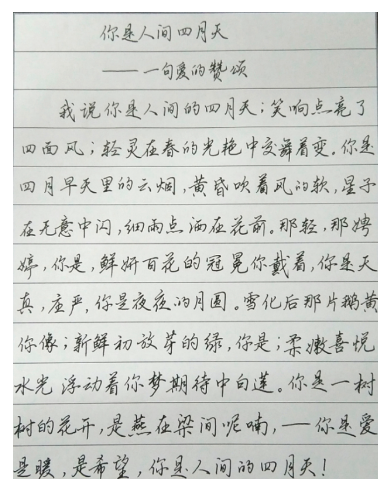 你是人间四月天
——一句爱的赞颂
我说你是人间的四月天；笑响点亮了
四面风；轻灵在春的光艳中交舞着变。你是
四月早天里的云烟，黄昏吹着风的软，星子
在无意中闪，细雨点洒在花前。那轻，那娉
婷，你是，鲜妍百花的冠冕你戴着，你是天
真，庄严，你是夜夜的月圆。雪化后那片鹅黄
你像；新鲜初放芽的绿，你是；柔嫩喜悦
水光浮动着你梦期待中白莲。你是一树
树的花开，是燕在梁间呢喃，—你是爱
是暖，是希望，你是人间的四月天！